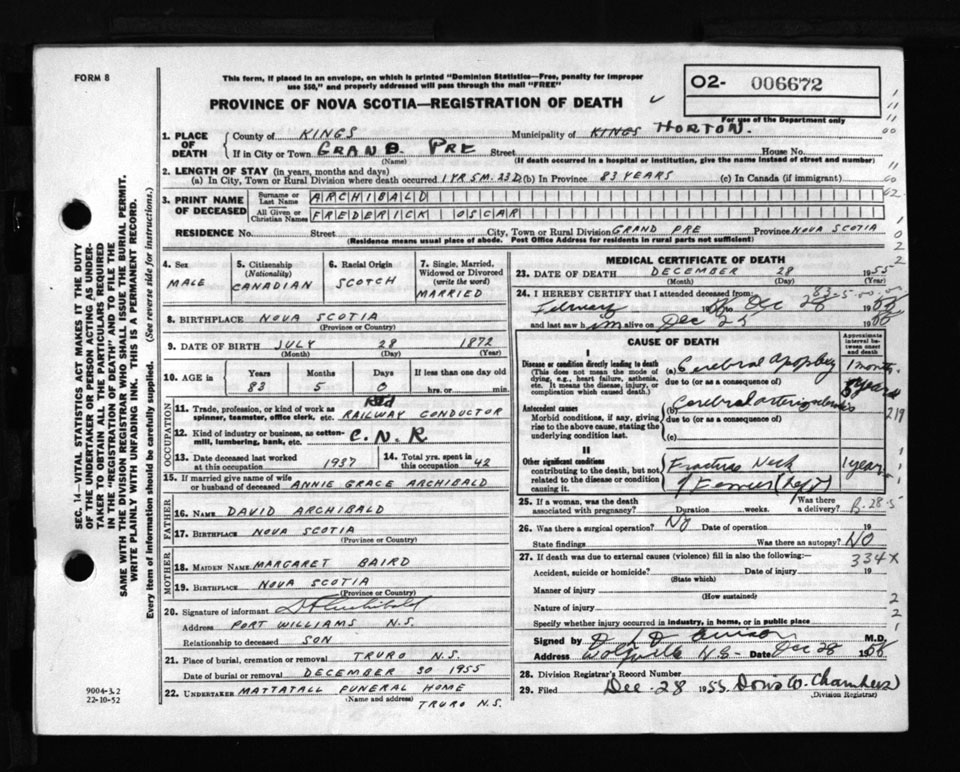 FORM 8
This form, if placed in an envelope, on which is printed "Dominion Statistics—Free, penalty for improper
use $50," and properly addressed will pass through the mail "FREE"
PROVINCE OF NOVA SCOTIA—REGISTRATION OF DEATH
02- 006672
For use of the Department only
SEC. 14—VITAL STATISTICS ACT MAKES IT THE DUTY
OF THE UNDERTAKER OR PERSON ACTING AS UNDER-
TAKER TO OBTAIN ALL THE PARTICULARS REQUIRED
IN THE "REGISTRATION OF DEATH" AND TO FILE THE
SAME WITH THE DIVISION REGISTRAR WHO SHALL ISSUE THE BURIAL PERMIT.
WRITE PLAINLY WITH UNFADING INK. THIS IS A PERMANENT RECORD.
Every item of information should be carefully supplied. (See reverse side for instructions.)
1. PLACE OF DEATH
County of KINGS Municipality of KINGS HORTON.
If in City or Town GRAND. PRE Street House No.
(Name) (If death occurred in a hospital or institution, give the name instead of street and number)
2. LENGTH OF STAY (in years, months and days)
(a) In City, Town or Rural Division where death occurred 1 YR 5M. 23D (b) In Province 83 YEARS (c) In Canada (if immigrant)
3. PRINT NAME OF DECEASED
Surname or Last Name ARCHIBALD
All Given or Christian Names FREDERICK OSCAR
RESIDENCE No. Street City, Town or Rural Division GRAND PRE Province NOVA SCOTIA
(Residence means usual place of abode. Post Office Address for residents in rural parts not sufficient)
4. Sex MALE
5. Citizenship (Nationality) CANADIAN
6. Racial Origin SCOTCH
7. Single, Married, Widowed or Divorced (write the word) MARRIED
8. BIRTHPLACE NOVA SCOTIA
(Province or Country)
9. DATE OF BIRTH JULY 28 1872
(Month) (Day) (Year)
10. AGE IN Years Months Days If less than one day old
83 5 0 hrs. or min.
OCCUPATION
11. Trade, profession, or kind of work as spinner, teamster, office clerk, etc. RAILWAY CONDUCTOR
12. Kind of industry or business, as cotton-mill, lumbering, bank, etc. C.N.R
13. Date deceased last worked at this occupation 1937
14. Total yrs. spent in this occupation 42
15. If married give name of wife or husband of deceased ANNIE GRACE ARCHIBALD
FATHER
16. NAME DAVID ARCHIBALD
17. BIRTHPLACE NOVA SCOTIA
(Province or Country)
MOTHER
18. MAIDEN NAME MARGARET BAIRD
19. BIRTHPLACE NOVA SCOTIA
(Province or Country)
20. Signature of informant Archibald
Address PORT WILLIAMS N.S.
Relationship to deceased SON
21. Place of burial, cremation or removal TRURO N.S.
Date of burial or removal DECEMBER 30 1955
22. UNDERTAKER MATTATALL FUNERAL HOME
(Name and address) TRURO N.S.
9004-3.2
22-10-52
MEDICAL CERTIFICATE OF DEATH
23. DATE OF DEATH DECEMBER 28 1955
(Month) (Day) (Year)
24. I HEREBY CERTIFY that I attended deceased from
February to Dec 28
and last saw him alive on Dec 25 19
CAUSE OF DEATH
Approximate interval between onset and death
I
Disease or condition directly leading to death
(This does not mean the mode of dying, e.g., heart failure, asthenia, etc. It means the disease, injury, or complication which caused death.)
(a) Cerebral Apoplexy 1 month
due to (or as a consequence of)
Antecedent causes
Morbid conditions, if any, giving rise to the above cause, stating the underlying condition last.
(b) Cerebral arteriosclerosis
due to (or as a consequence of)
(c)
II
Other significant conditions
contributing to the death, but not related to the disease or condition causing it.
Fracture Neck 1 year
of Femur (Left)
25. If a woman, was the death associated with pregnancy? Duration weeks. Was there a delivery?
26. Was there a surgical operation? No Date of operation 19
State findings Was there an autopsy? NO
27. If death was due to external causes (violence) fill in also the following:— 334X
Accident, suicide or homicide? Date of injury 19
(State which)
Manner of injury
(How sustained)
Nature of injury
Specify whether injury occurred in industry, in home, or in public place
Signed by M.D.
Address Wolfville N.S- Date Dec 28 19
28. Division Registrar's Record Number
29. Filed Dec - 28 1955. Doris W. Chambers
(Division Registrar)